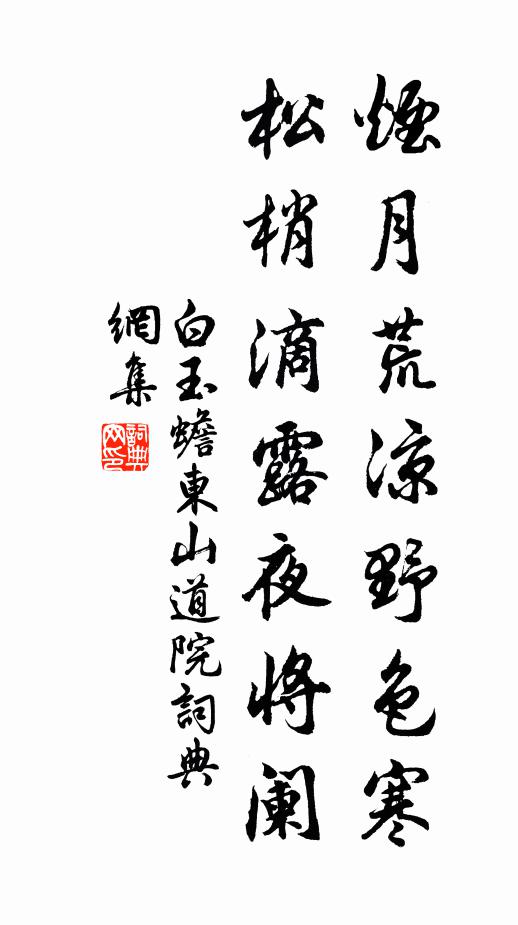 煙月荒涼野色寒
松梢滴露夜將闌
白玉蟾東山道院詞典
網集
詞典网印